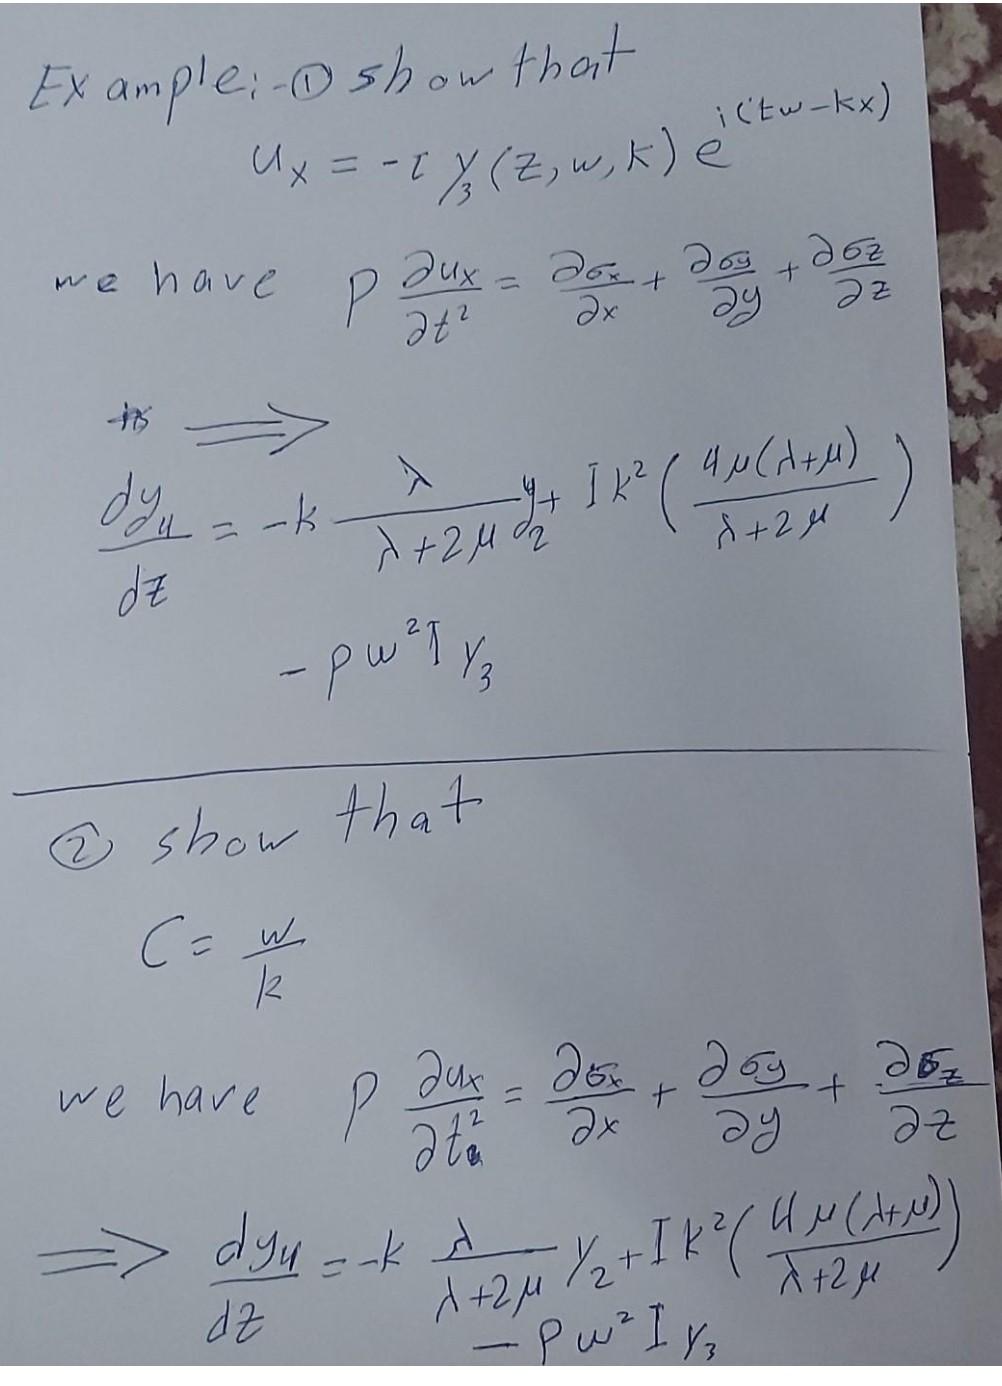 Example:- ① show that
u_x = -i y_3 (z, w, k) e^{i(tw-kx)}
we have ρ ∂u_x/∂t² = ∂σ_x/∂x + ∂σ_y/∂y + ∂σ_z/∂z
⟹
dy_4/dz = -k λ/(λ+2μ) y_2 + I k² (4μ(λ+μ)/(λ+2μ))
- ρw² I y_3
② show that
C = w/k
we have ρ ∂u_x/∂t² = ∂σ_x/∂x + ∂σ_y/∂y + ∂σ_z/∂z
⟹ dy_4/dz = -k λ/(λ+2μ) y_2 + I k² (4μ(λ+μ)/(λ+2μ))
- ρw² I y_3